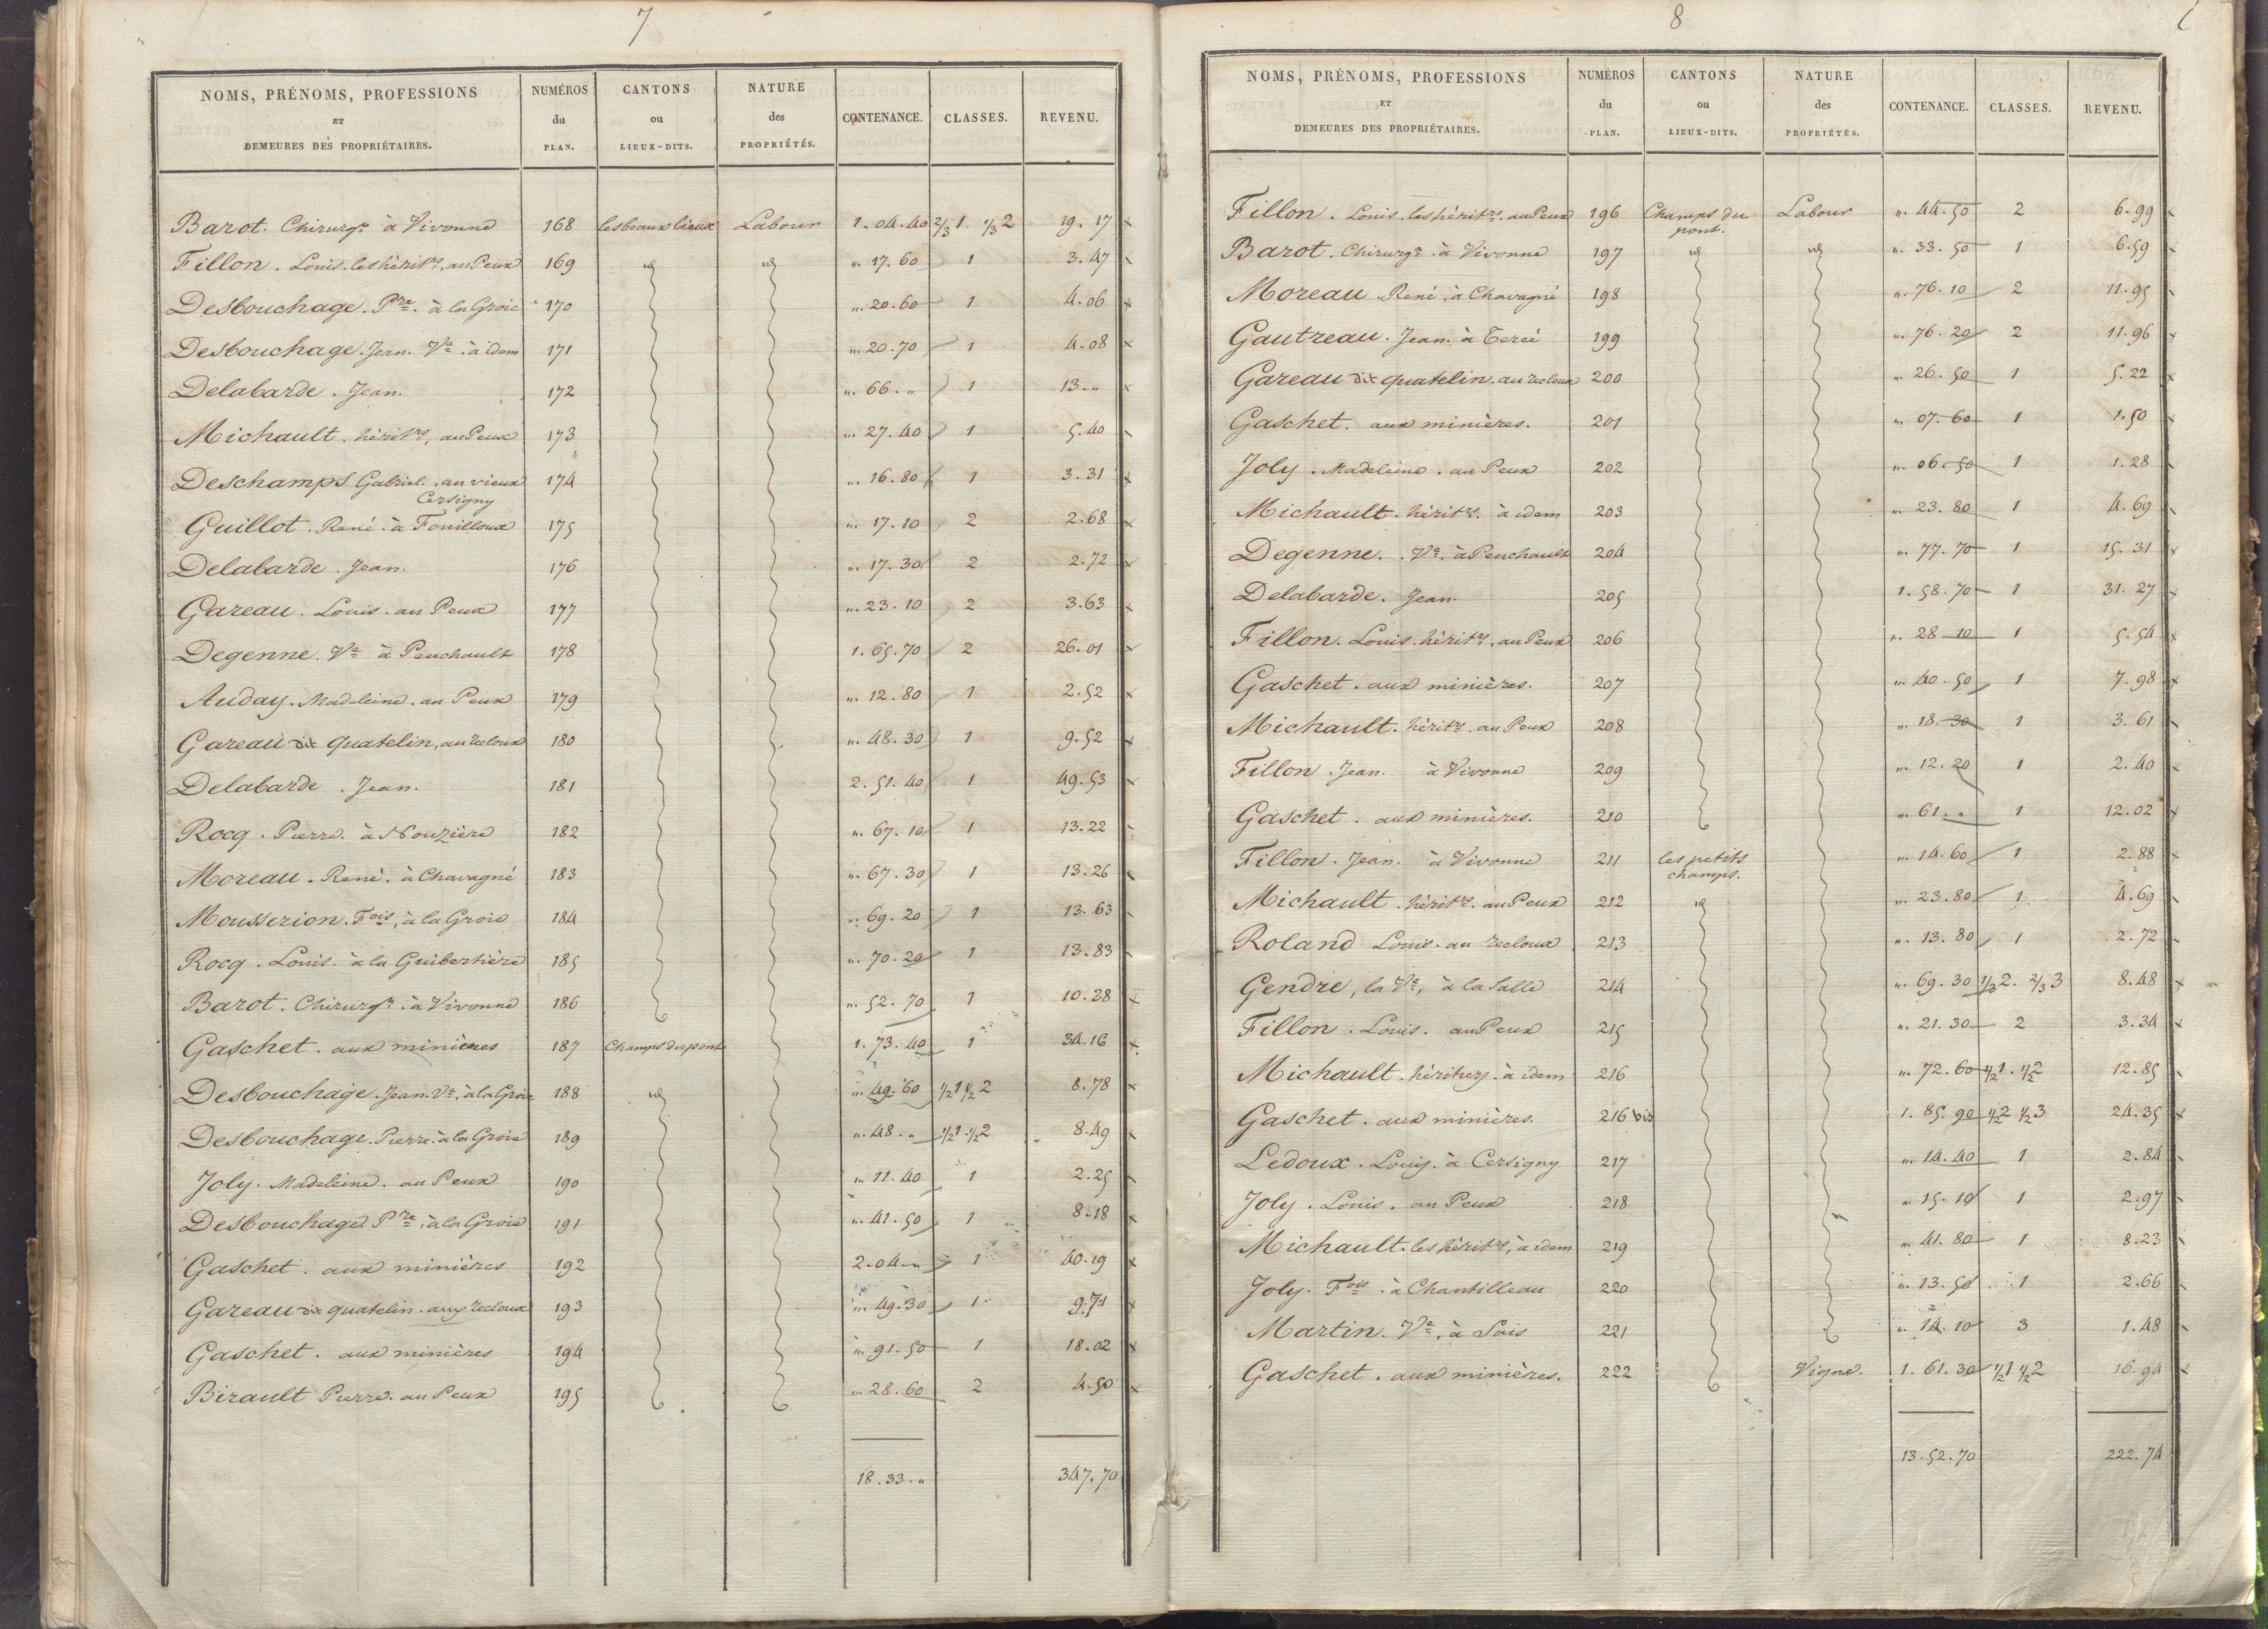 7
NOMS, PRÉNOMS, PROFESSIONS ET DEMEURES DES PROPRIÉTAIRES. NUMÉROS du PLAN. CANTONS ou LIEUX-DITS. NATURE des PROPRIÉTÉS. CONTENANCE. CLASSES. REVENU.
Barot. Chirurgn. à Vivonne 168 les beaux lieux Labour 1. 04. 40 2/3 1. 1/3 2 19. 17
Fillon. Louis. les héritrs. au Peux 169 id id „. 17. 60 1 3. 47
Desbouchage. Pre. à la Groie 170 „. 20. 60 1 4. 06
Desbouchage. Jean. Ve. à idem 171 „. 20. 70 1 4. 08
Delabarde. Jean. 172 „. 66. „ 1 13. „
Michault. héritrs, au Peux 173 „. 27. 40 1 5. 40
Deschamps Gabriel. au vieux Cersigny 174 „. 16. 80 1 3. 31
Guillot. René. à Fouilloux 175 „. 17. 10 2 2. 68
Delabarde. Jean. 176 „. 17. 30 2 2. 72
Gareau. Louis. au Peux 177 „. 23. 10 2 3. 63
Degenne. Ve à Peuchault 178 1. 65. 70 2 26. 01
Auday. Madeleine. au Peux 179 „. 12. 80 1 2. 52
Gareau dit quatelin, au recloux 180 „. 48. 30 1 9. 52
Delabarde. Jean. 181 2. 51. 40 1 49. 53
Rocq. Pierre. à Nouzière 182 „. 67. 10 1 13. 22
Moreau. René. à Chavagné 183 „. 67. 30 1 13. 26
Mousserion. Fois, à la Groie 184 „. 69. 20 1 13. 63
Rocq. Louis. à la Guibertière 185 „. 70. 20 1 13. 83
Barot. Chirurgn. à Vivonne 186 „. 52. 70 1 10. 38
Gaschet. aux minières 187 Champs du pont 1. 73. 40 1 34. 16
Desbouchage. Jean. Ve. à la Groie 188 id „. 49. 60 1/2 1 1/2 2 8. 78
Desbouchage. Pierre. à la Groie 189 „. 48. „ 1/2 1. 1/2 2 8. 49
Joly. Madeleine. au Peux 190 „. 11. 40 1 2. 25
Desbouchage. Pre, à la Groie 191 „. 41. 50 1 8. 18
Gaschet. aux minières 192 2. 04. „ 1 40. 19
Gareau dit quatelin. aux recloux 193 „. 49. 30 1 9. 71
Gaschet. aux minières 194 „. 91. 50 1 18. 02
Birault Pierre. au Peux 195 „. 28. 60 2 4. 50
18. 33. „ 347. 70
8
NOMS, PRÉNOMS, PROFESSIONS ET DEMEURES DES PROPRIÉTAIRES. NUMÉROS du PLAN. CANTONS ou LIEUX-DITS. NATURE des PROPRIÉTÉS. CONTENANCE. CLASSES. REVENU.
Fillon. Louis. les héritrs. au Peux 196 Champs du pont. Labour „. 44. 50 2 6. 99
Barot. Chirurgn. à Vivonne 197 id id „. 33. 50 1 6. 59
Moreau René, à Chavagné 198 „. 76. 10 2 11. 95
Gautreau. Jean. à Tercé 199 „. 76. 20 2 11. 96
Gareau dit quatelin. au recloux 200 „. 26. 50 1 5. 22
Gaschet. aux minières. 201 „. 07. 60 1 1. 50
Joly. Madeleine. au Peux 202 „. 06. 50 1 1. 28
Michault. héritrs. à idem 203 „. 23. 80 1 4. 69
Degenne. Ve. à Peuchault 204 „. 77. 70 1 15. 31
Delabarde. Jean. 205 1. 58. 70 1 31. 27
Fillon. Louis. héritrs, au Peux 206 „. 28. 10 1 5. 54
Gaschet. aux minières. 207 „. 40. 50 1 7. 98
Michault. héritrs. au Peux 208 „. 18. 30 1 3. 61
Fillon. Jean. à Vivonne 209 „. 12. 20 1 2. 40
Gaschet. aux minières. 210 „. 61. „ 1 12. 02
Fillon. Jean. à Vivonne 211 les petits champs. „. 14. 60 1 2. 88
Michault. héritrs. au Peux 212 id „. 23. 80 1 4. 69
Roland Louis. au recloux 213 „. 13. 80 1 2. 72
Gendre, la Ve, à la Salle 214 „. 69. 30 1/3 2. 2/3 3 8. 48
Fillon. Louis. au Peux 215 „. 21. 30 2 3. 34
Michault. héritiers. à idem 216 „. 72. 60 1/2 1. 1/2 2 12. 85
Gaschet. aux minières. 216 bis 1. 85. 90 1/2 2 1/2 3 24. 35
Ledoux. Louis. à Cersigny 217 „. 14. 40 1 2. 84
Joly. Louis. au Peux 218 „. 15. 10 1 2. 97
Michault. les héritrs, à idem 219 „. 41. 80 1 8. 23
Joly. Fois. à Chantilleau 220 „. 13. 50 1 2. 66
Martin. Ve, à Sais 221 „. 14. 10 3 1. 48
Gaschet. aux minières. 222 Vigne. 1. 61. 30 1/2 1 1/2 2 16. 94
13. 52. 70 222. 74